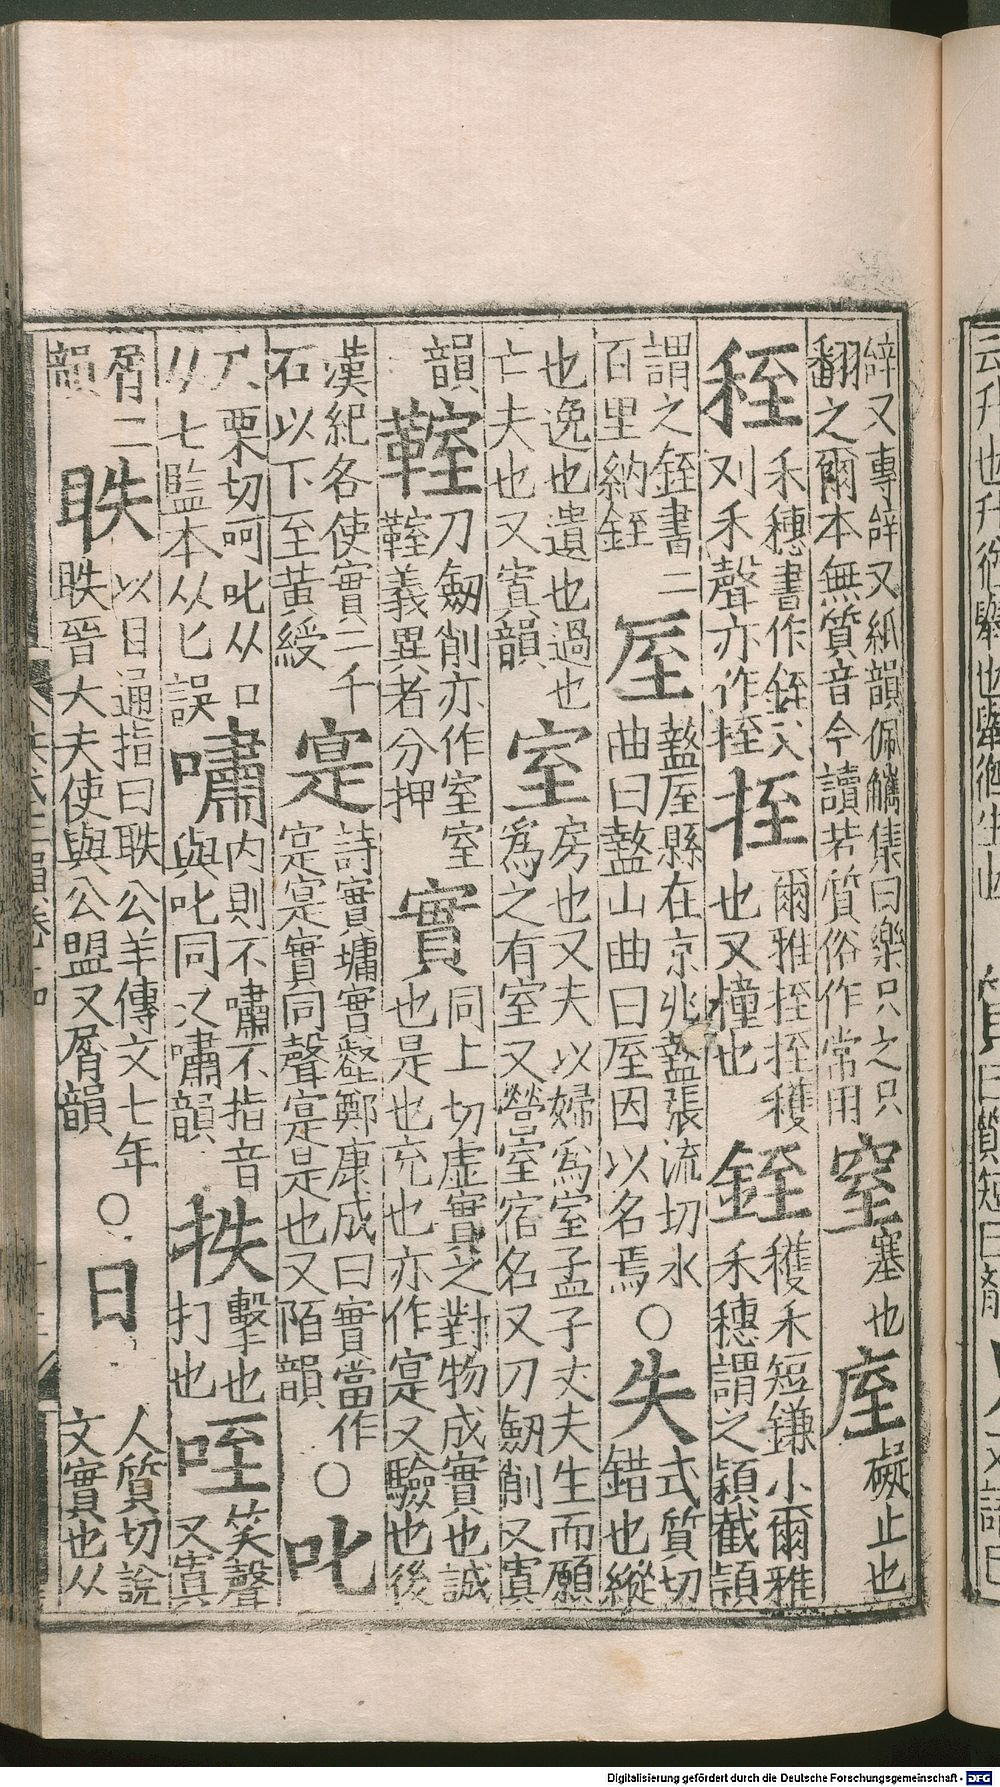 辭又專辭又紙韻佩觿集曰樂只之只
翻之爾本無質音今讀若質俗作常用
窒塞也庢礙止也
秷禾穗書作銍又
刈禾聲亦作挃挃爾雅挃挃穫
也又撞也銍穫禾短鎌小爾雅
禾穗謂之穎截穎
謂之銍書二
百里納銍庢盩庢縣在京兆盩張流切水
曲曰盩山曲曰庢因以名焉○失式質切
錯也縱
也逸也遺也過也
亡夫也又寘韻室房也又夫以婦爲室孟子丈夫生而願
爲之有室又營室宿名又刀劒削又寘
韻鞏刀劒削亦作室室
鞏義異者分押實同上切虛實之對物成實也誠
也是也充也亦作寔又驗也後
漢紀各使實二千
石以下至黃綬寔詩實墉實壑鄭康成曰實當作
寔寔實同聲寔是也又陌韻○叱
尺栗切呵叱从口
从七監本从匕誤嘯內則不嘯不指音
與叱同又嘯韻抶擊也
打也咥笑聲
又寘
屑二
韻眣以目通指曰眣公羊傳文七年
眣晉大夫使與公盟又屑韻○日人質切說
文實也从
Digitalisierung gefördert durch die Deutsche Forschungsgemeinschaft - DFG